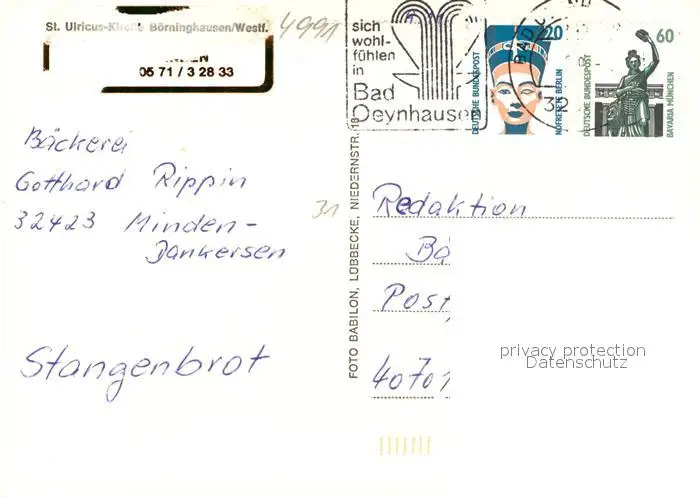 St. Ulricus-Kirche Börninghausen/Westf.
4991
05 71 / 3 28 33
sich
wohl-
fühlen
in
Bad
Oeynhausen
DEUTSCHE BUNDESPOST
20
NOFRETETE BERLIN
DEUTSCHE BUNDESPOST
60
BAVARIA MÜNCHEN
Bäckerei
Gotthard Rippin
32423 Minden-
Dankersen
Stangenbrot
31
FOTO BABILON, LÜBBECKE, NIEDERNSTR. 18
Redaktion
Bä
Post
40701
privacy protection
Datenschutz